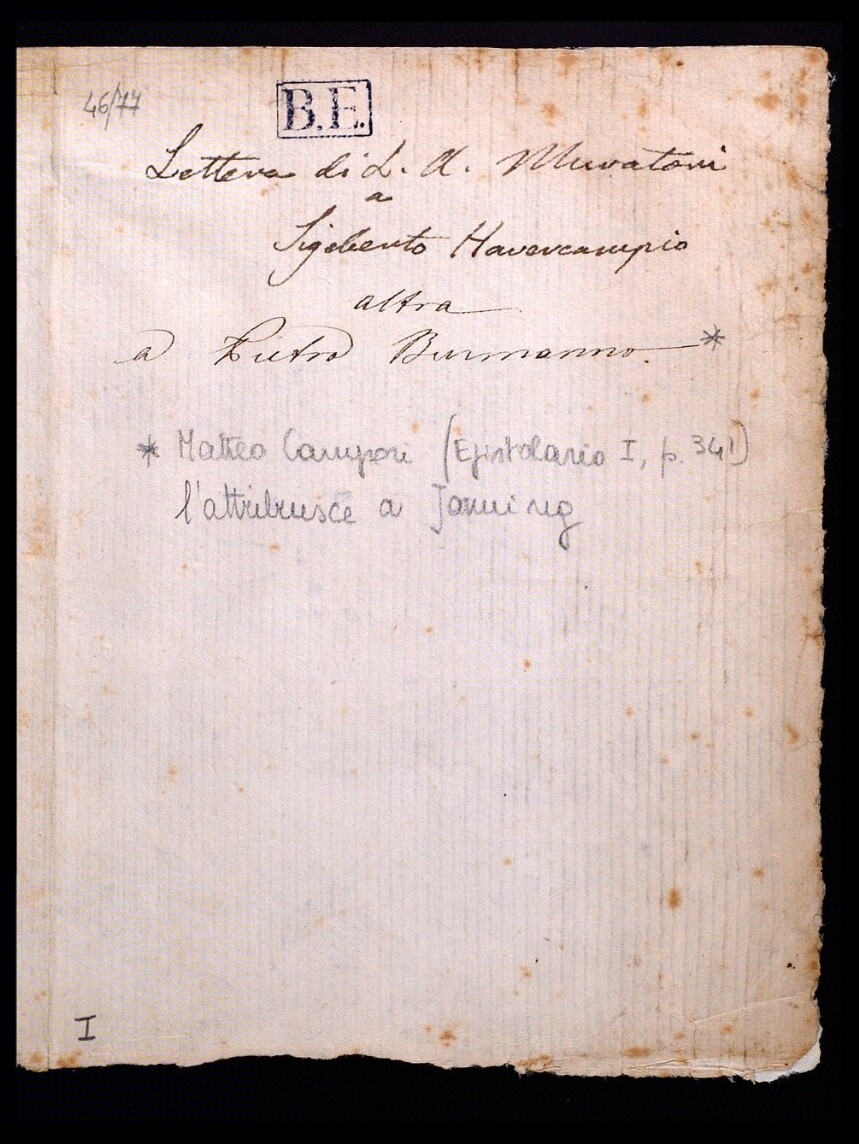 46/77
B.E.
Lettera di L. A. Muratori
a
Sigeberto Havercampio
altra
a Pietro Burmanno. *
* Matteo Campori (Epistolario I, p. 341)
l'attribuisce a Janning
I